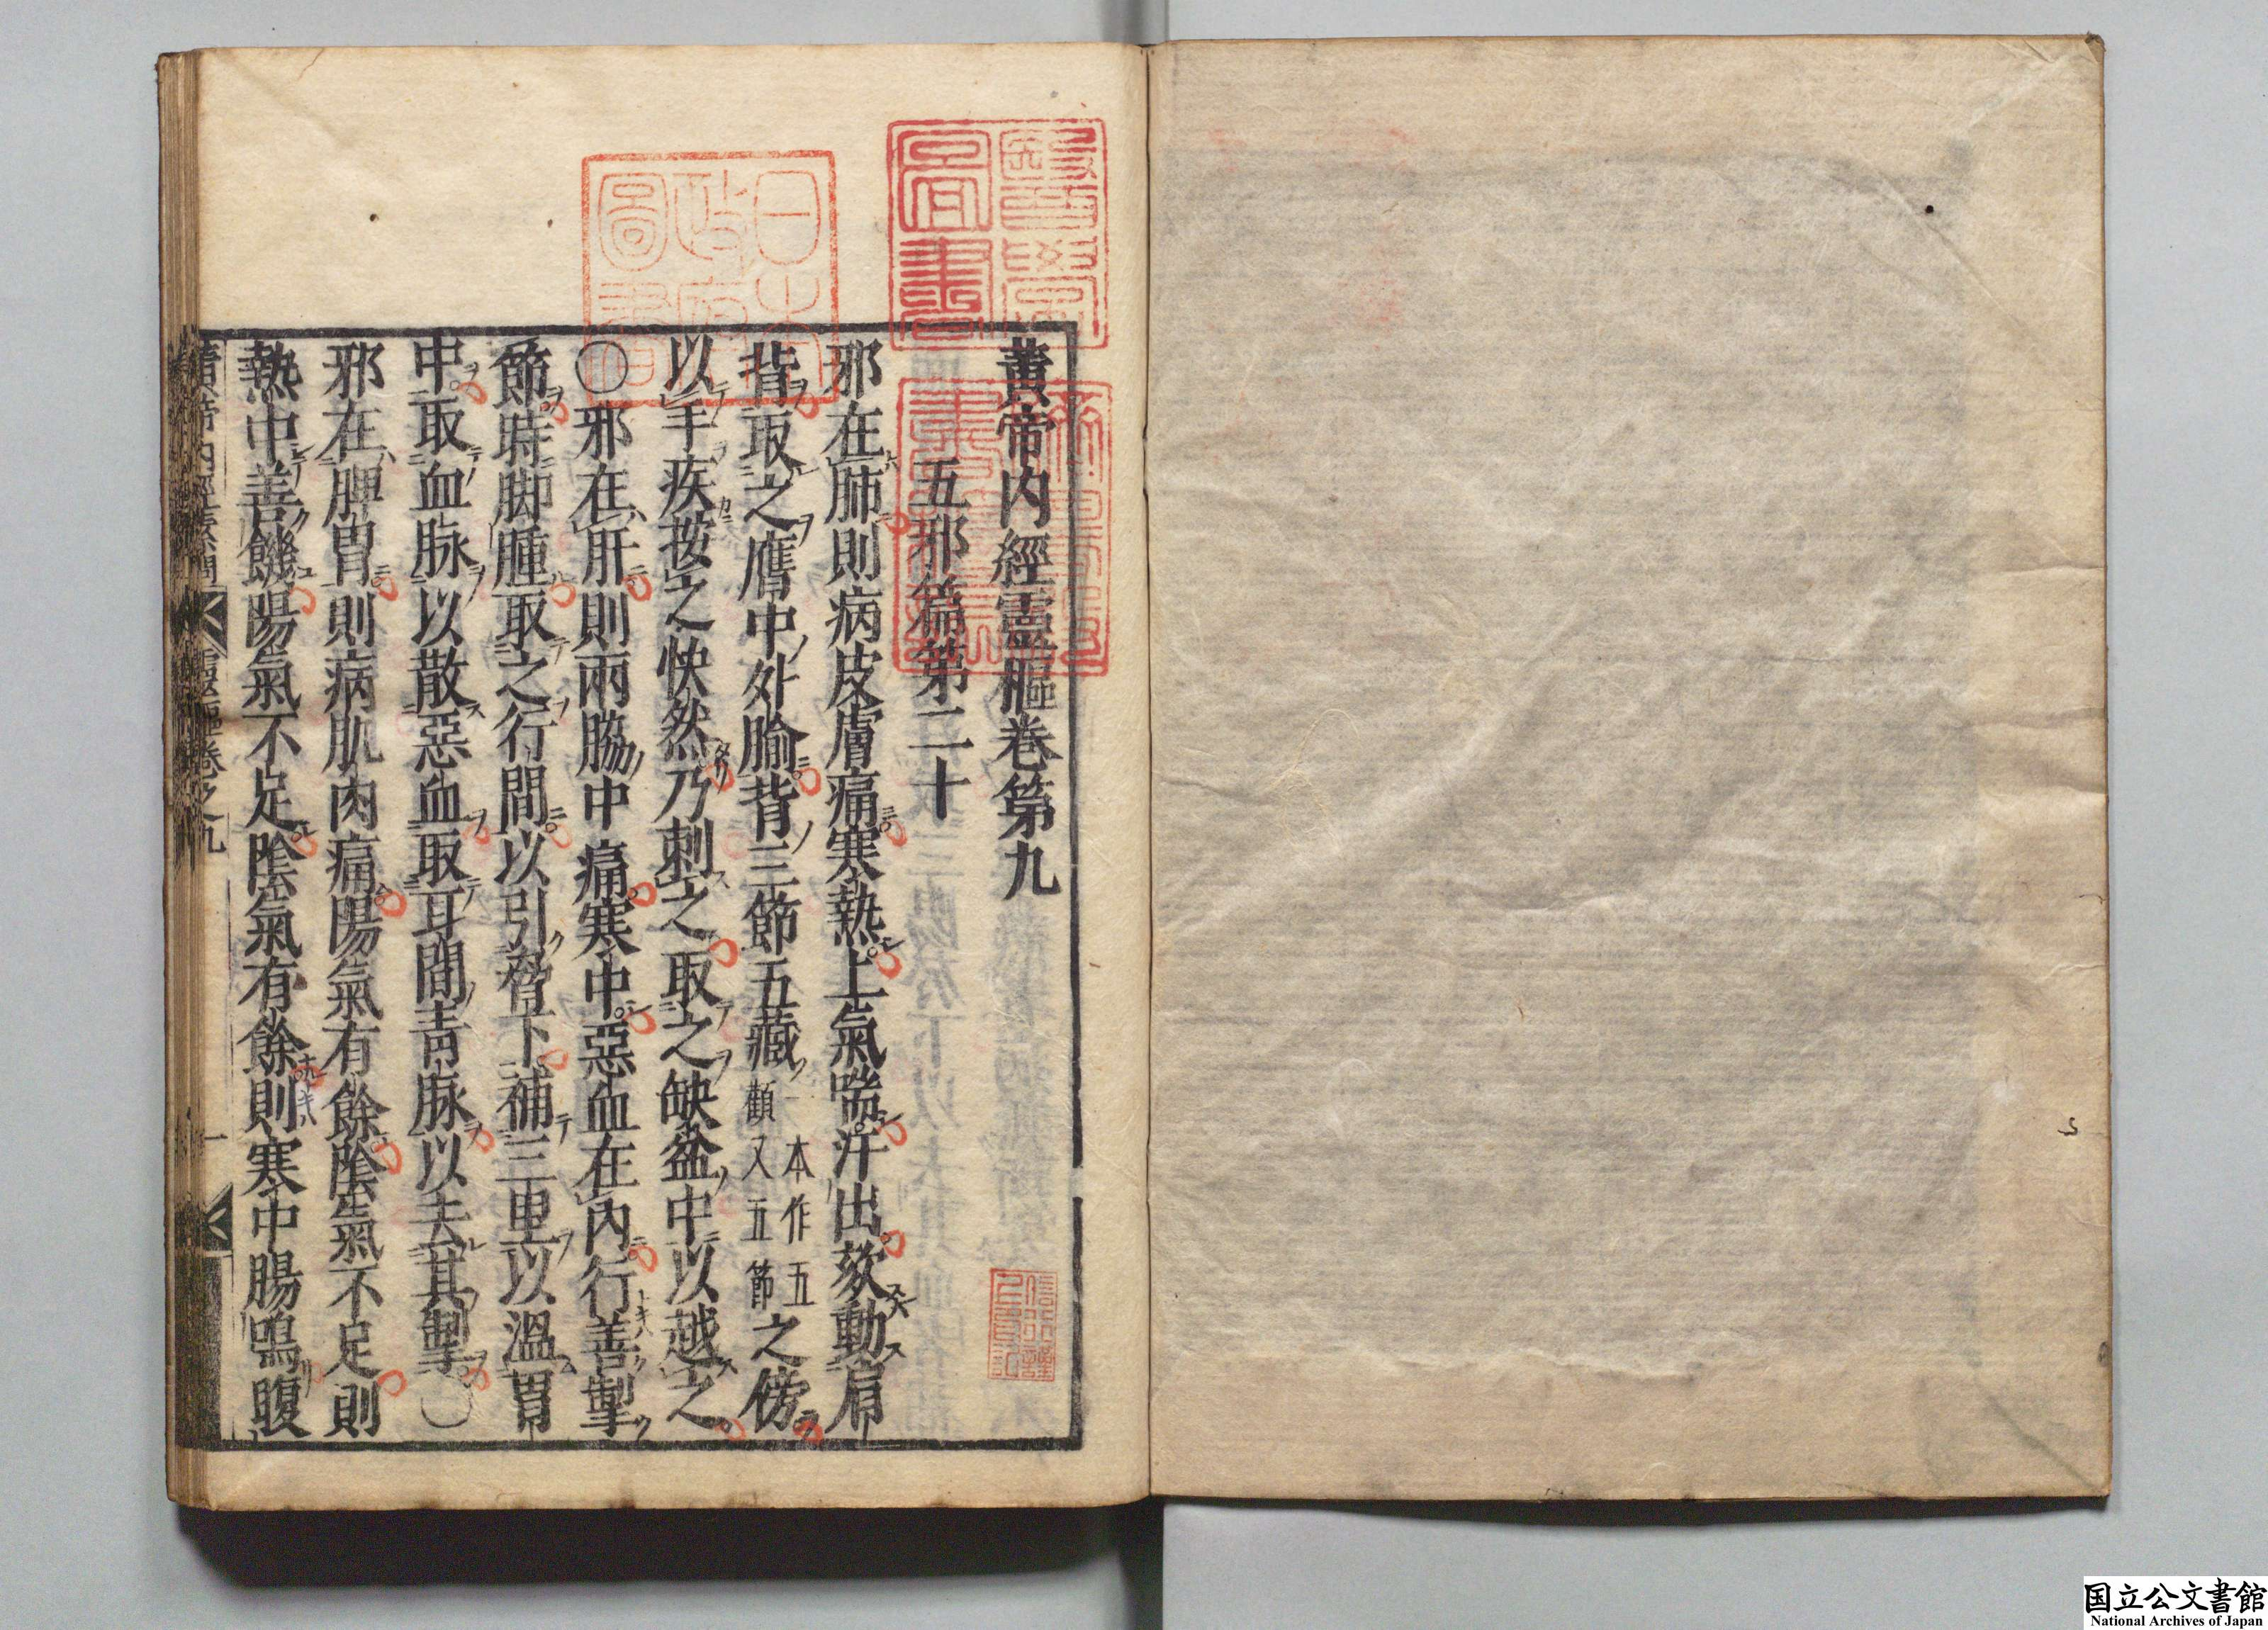 黃帝内經靈樞卷第九
五邪篇第二十
邪在肺則病皮膚痛寒熱上氣喘汗出欬動肩
背取之膺中外腧背三節五藏一本作五顀又五節之傍
以手疾按之快然乃刺之取之缺盆中以越之
〇邪在肝則兩脇中痛寒中惡血在內行善掣
節時脚腫取之行間以引脅下補三里以溫胃
中取血脉以散惡血取耳間靑脉以去其掣〇
邪在脾胃則病肌肉痛陽氣有餘陰氣不足則
熱中善饑陽氣不足陰氣有餘則寒中腸鳴腹
黃帝內經素問 靈樞卷之九 一
日本政府圖書
国立公文書館
National Archives of Japan